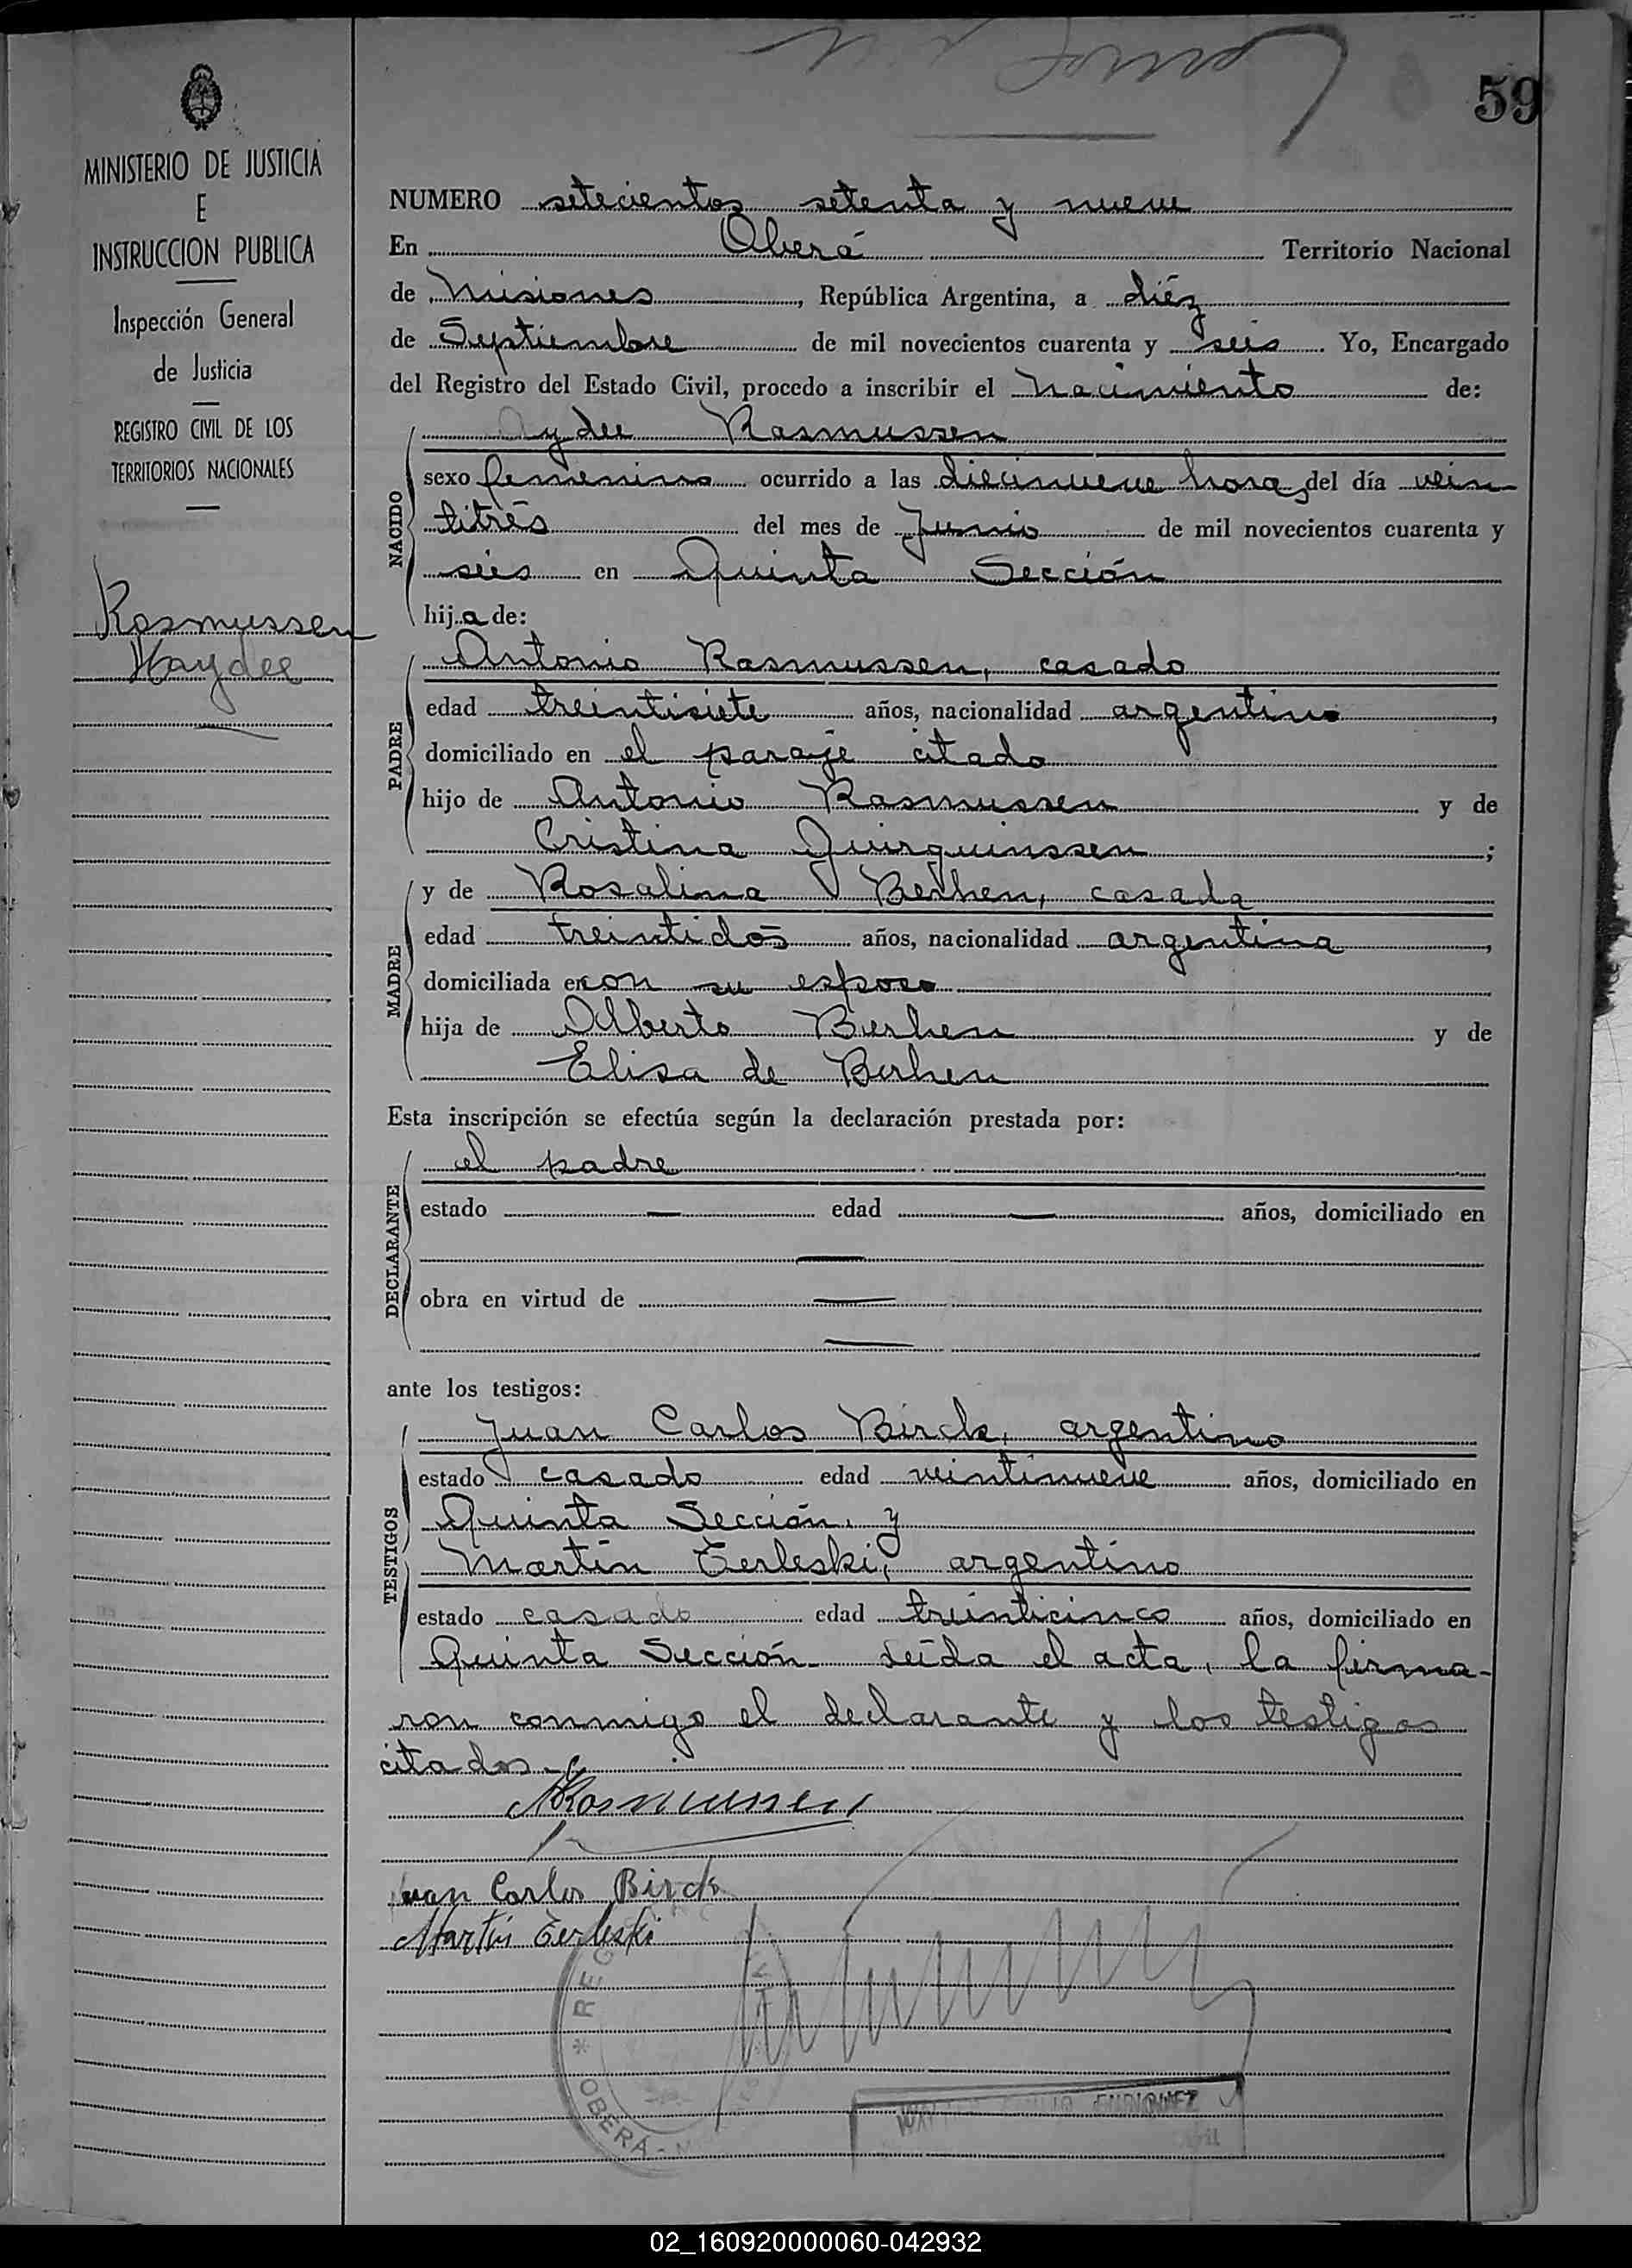 59
MINISTERIO DE JUSTICIA
E
INSTRUCCION PUBLICA
Inspección General
de Justicia
REGISTRO CIVIL DE LOS
TERRITORIOS NACIONALES
Rasmussen
Haydee
NUMERO setecientos setenta y nueve
En Oberá Territorio Nacional
de Misiones, República Argentina, a diéz
de Septiembre de mil novecientos cuarenta y seis Yo, Encargado
del Registro del Estado Civil, procedo a inscribir el nacimiento de:
Aydee Rasmussen
NACIDO
sexo femenino ocurrido a las diecinueve horas del día vein
titrés del mes de Junio de mil novecientos cuarenta y
seis en Quinta Sección
hija de:
Antonio Rasmussen, casado
PADRE
edad treintisiete años, nacionalidad argentino,
domiciliado en el paraje citado
hijo de Antonio Rasmussen y de
Cristina Quirquinssen;
y de Rosalina Berhen, casada
MADRE
edad treintidós años, nacionalidad argentina,
domiciliada en con su esposo
hija de Alberto Berhen y de
Elisa de Berhen
Esta inscripción se efectúa según la declaración prestada por:
el padre
DECLARANTE
estado — edad — años, domiciliado en
—
obra en virtud de —
—
ante los testigos:
Juan Carlos Birck, argentino
TESTIGOS
estado casado edad veintinueve años, domiciliado en
Quinta Sección. y
Martín Eerleski, argentino
estado casado edad treinticinco años, domiciliado en
Quinta Sección. Leída el acta, la firma-
ron conmigo el declarante y los testigos
citados.-
ARasmussen
Juan Carlos Birck
Martín Eerleski
* REG
OBERÁ - M
ENRIQUEZ
02_160920000060-042932